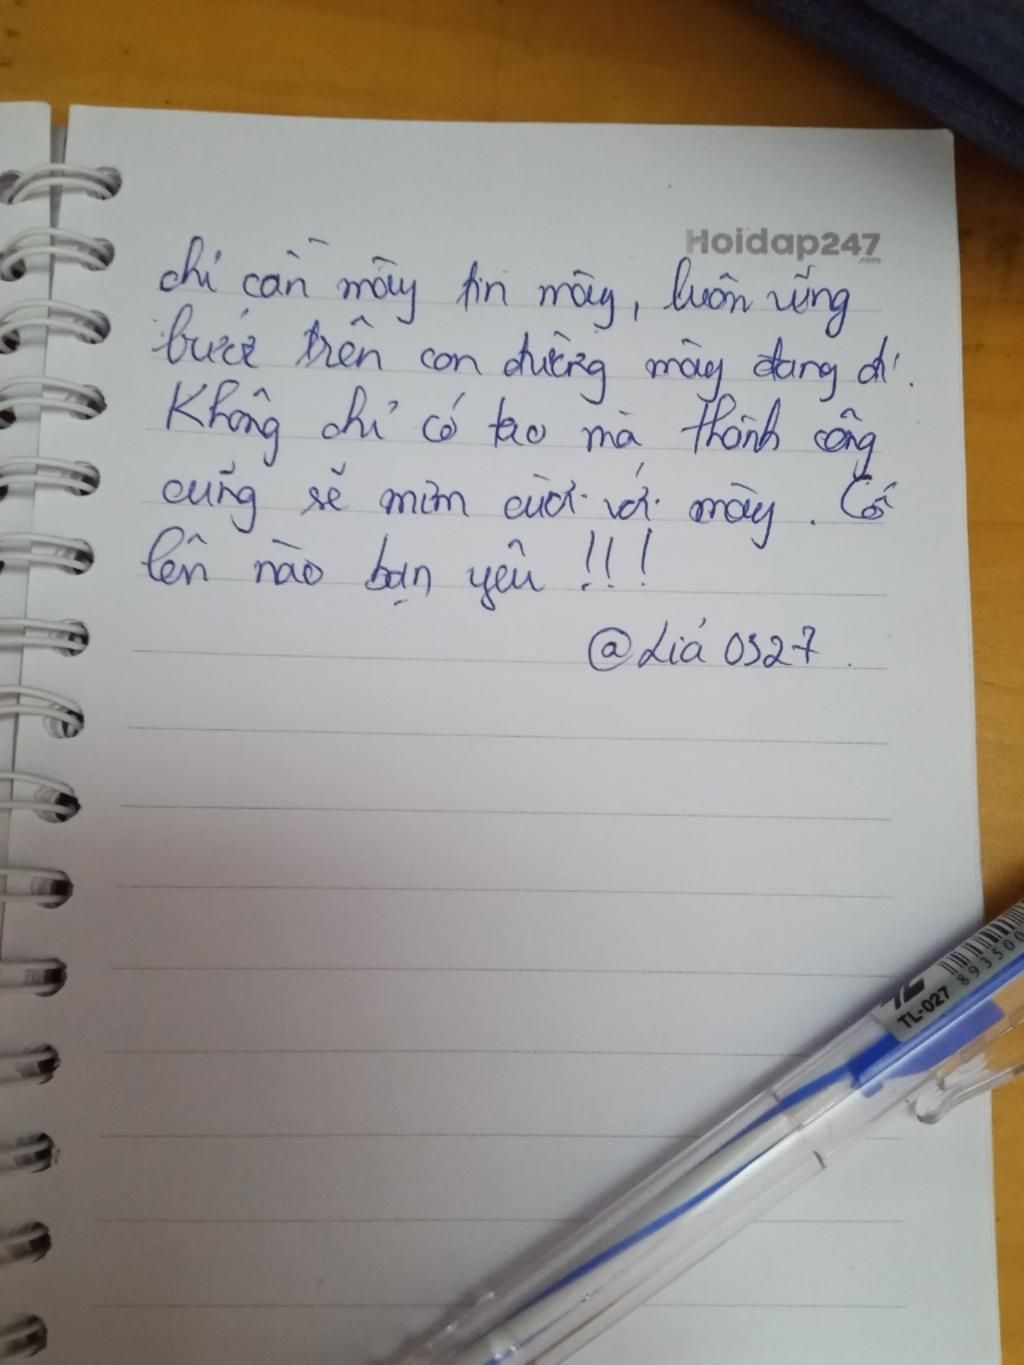 Hoidap247
.com
chỉ cần mày tin mày, luôn vững
bước trên con đường mày đang đi.
Không chỉ có tao mà thành công
cũng sẽ mỉm cười với mày. Cố
lên nào bạn yêu !!!
@Liá 0327.
TL-027
893500